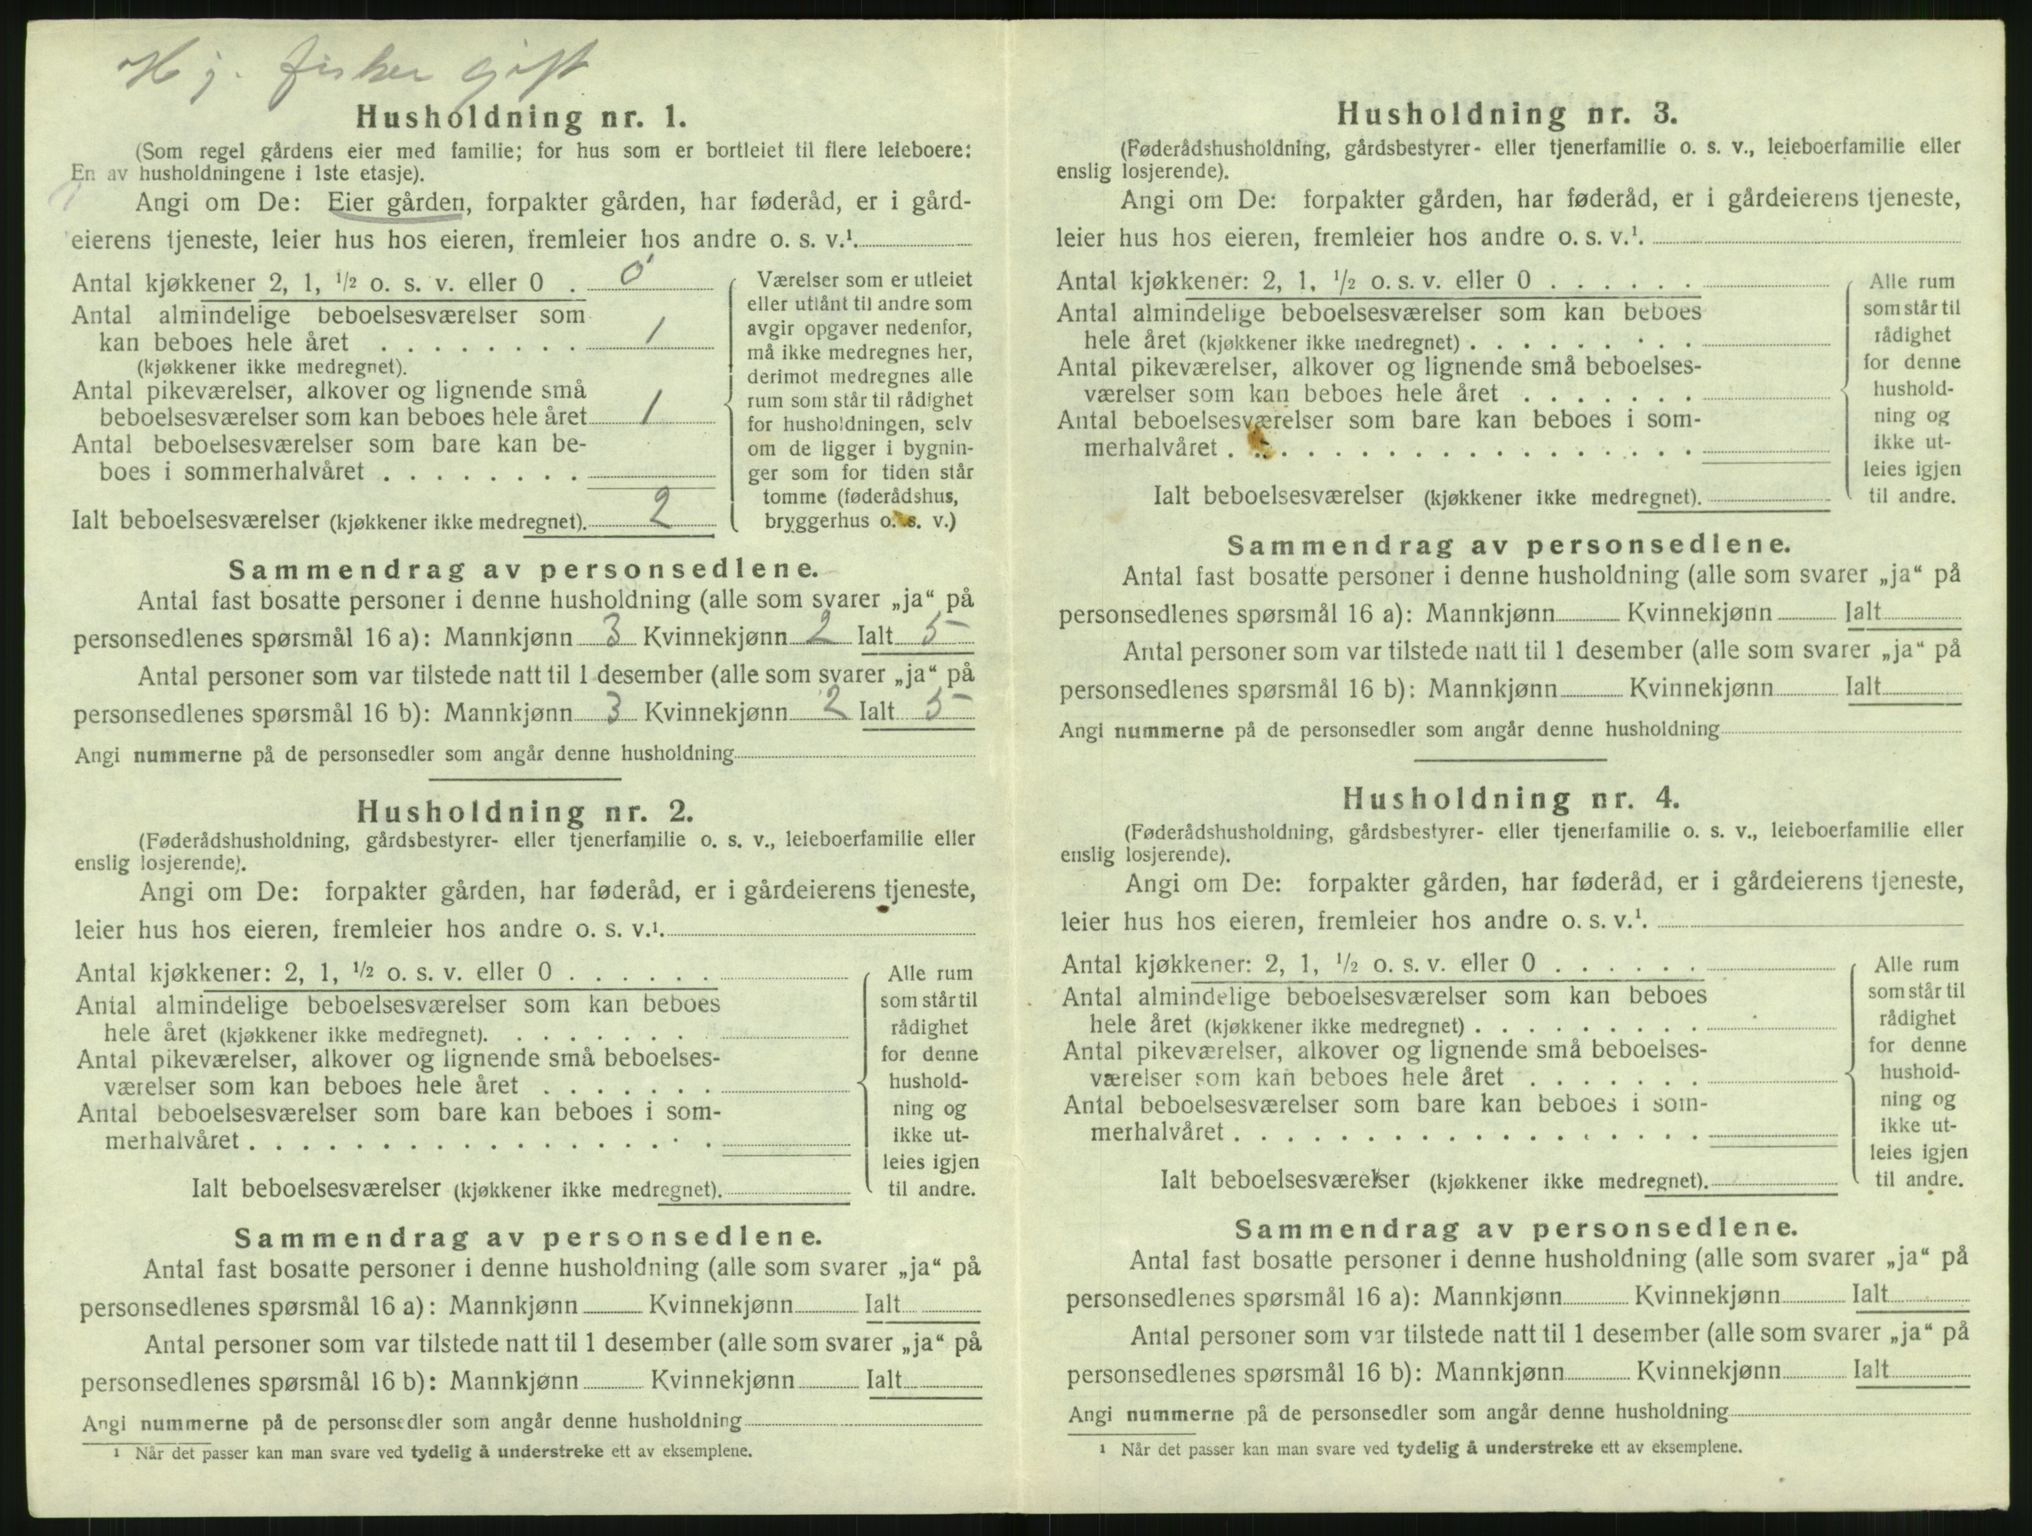 Hj. fisker gift
Husholdning nr. 1.
(Som regel gårdens eier med familie; for hus som er bortleiet til flere leieboere:
En av husholdningene i 1ste etasje).
Angi om De: Eier gården, forpakter gården, har føderåd, er i gård-
eierens tjeneste, leier hus hos eieren, fremleier hos andre o. s. v.¹.
Antal kjøkkener 2, 1, ½ o. s. v. eller 0 . 0
Antal almindelige beboelsesværelser som
kan beboes hele året . . . . . . . . 1
(kjøkkener ikke medregnet).
Antal pikeværelser, alkover og lignende små
beboelsesværelser som kan beboes hele året 1
Antal beboelsesværelser som bare kan be-
boes i sommerhalvåret . . . . . . . .
Ialt beboelsesværelser (kjøkkener ikke medregnet). 2
Værelser som er utleiet
eller utlånt til andre som
avgir opgaver nedenfor,
må ikke medregnes her,
derimot medregnes alle
rum som står til rådighet
for husholdningen, selv
om de ligger i bygnin-
ger som for tiden står
tomme (føderådshus,
bryggerhus o. s. v.)
Sammendrag av personsedlene.
Antal fast bosatte personer i denne husholdning (alle som svarer „ja“ på
personsedlenes spørsmål 16 a): Mannkjønn 3 Kvinnekjønn 2 Ialt 5
Antal personer som var tilstede natt til 1 desember (alle som svarer „ja“ på
personsedlenes spørsmål 16 b): Mannkjønn 3 Kvinnekjønn 2 Ialt 5
Angi nummerne på de personsedler som angår denne husholdning
Husholdning nr. 2.
(Føderådshusholdning, gårdsbestyrer- eller tjenerfamilie o. s. v., leieboerfamilie eller
enslig losjerende).
Angi om De: forpakter gården, har føderåd, er i gårdeierens tjeneste,
leier hus hos eieren, fremleier hos andre o. s. v.¹.
Antal kjøkkener: 2, 1, ½ o. s. v. eller 0 . . . . . .
Antal almindelige beboelsesværelser som kan beboes
hele året (kjøkkener ikke medregnet). . . . . . . . .
Antal pikeværelser, alkover og lignende små beboelses-
værelser som kan beboes hele året . . . . . . .
Antal beboelsesværelser som bare kan beboes i som-
merhalvåret . . . . . . . . . . . . . . . . . .
Ialt beboelsesværelser (kjøkkener ikke medregnet).
Alle rum
som står til
rådighet
for denne
hushold-
ning og
ikke ut-
leies igjen
til andre.
Sammendrag av personsedlene.
Antal fast bosatte personer i denne husholdning (alle som svarer „ja“ på
personsedlenes spørsmål 16 a): Mannkjønn Kvinnekjønn Ialt
Antal personer som var tilstede natt til 1 desember (alle som svarer „ja“ på
personsedlenes spørsmål 16 b): Mannkjønn Kvinnekjønn Ialt
Angi nummerne på de personsedler som angår denne husholdning
¹ Når det passer kan man svare ved tydelig å understreke ett av eksemplene.
Husholdning nr. 3.
(Føderådshusholdning, gårdsbestyrer- eller tjenerfamilie o. s. v., leieboerfamilie eller
enslig losjerende).
Angi om De: forpakter gården, har føderåd, er i gårdeierens tjeneste,
leier hus hos eieren, fremleier hos andre o. s. v.¹.
Antal kjøkkener: 2, 1, ½ o. s. v. eller 0 . . . . . .
Antal almindelige beboelsesværelser som kan beboes
hele året (kjøkkener ikke medregnet) . . . . . . . . .
Antal pikeværelser, alkover og lignende små beboelses-
værelser som kan beboes hele året . . . . . . .
Antal beboelsesværelser som bare kan beboes i som-
merhalvåret . . . . . . . . . . . . . . . . . .
Ialt beboelsesværelser (kjøkkener ikke medregnet).
Alle rum
som står til
rådighet
for denne
hushold-
ning og
ikke ut-
leies igjen
til andre.
Sammendrag av personsedlene.
Antal fast bosatte personer i denne husholdning (alle som svarer „ja“ på
personsedlenes spørsmål 16 a): Mannkjønn Kvinnekjønn Ialt
Antal personer som var tilstede natt til 1 desember (alle som svarer „ja“ på
personsedlenes spørsmål 16 b): Mannkjønn Kvinnekjønn Ialt
Angi nummerne på de personsedler som angår denne husholdning
Husholdning nr. 4.
(Føderådshusholdning, gårdsbestyrer- eller tjenerfamilie o. s. v., leieboerfamilie eller
enslig losjerende).
Angi om De: forpakter gården, har føderåd, er i gårdeierens tjeneste,
leier hus hos eieren, fremleier hos andre o. s. v.¹.
Antal kjøkkener: 2, 1, ½ o. s. v. eller 0 . . . . . .
Antal almindelige beboelsesværelser som kan beboes
hele året (kjøkkener ikke medregnet) . . . . . . . . .
Antal pikeværelser, alkover og lignende små beboelses-
værelser som kan beboes hele året . . . . . . .
Antal beboelsesværelser som bare kan beboes i som-
merhalvåret . . . . . . . . . . . . . . . . . .
Ialt beboelsesværelser (kjøkkener ikke medregnet).
Alle rum
som står til
rådighet
for denne
hushold-
ning og
ikke ut-
leies igjen
til andre.
Sammendrag av personsedlene.
Antal fast bosatte personer i denne husholdning (alle som svarer „ja“ på
personsedlenes spørsmål 16 a): Mannkjønn Kvinnekjønn Ialt
Antal personer som var tilstede natt til 1 desember (alle som svarer „ja“ på
personsedlenes spørsmål 16 b): Mannkjønn Kvinnekjønn Ialt
Angi nummerne på de personsedler som angår denne husholdning
¹ Når det passer kan man svare ved tydelig å understreke ett av eksemplene.